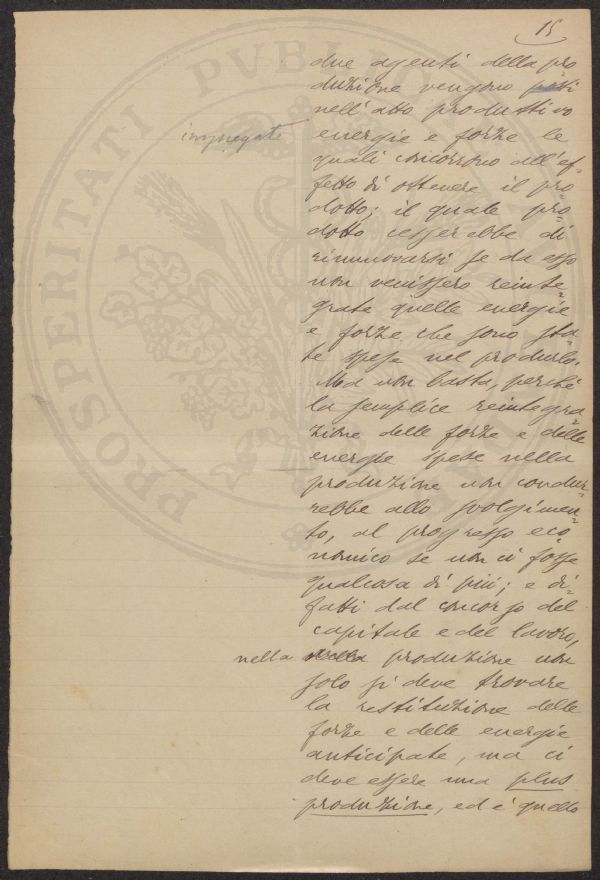 15
due agenti della pro-
duzione vengono
nell'atto produttivo
impiegate energie e forze le
quali concorrono all'ef-
fetto di ottenere il pro-
dotto; il quale pro-
dotto cesserebbe di
rinnovarsi se da esso
non venissero reinte-
grate quelle energie
e forze che sono sta-
te spese nel produrlo.
Ma non basta, perché
la semplice reintegra-
zione delle forze e delle
energie spese nella
produzione non condur-
rebbe allo svolgimen-
to, al progresso eco-
nomico se non ci fosse
qualcosa di più; e di-
fatti dal concorso del
capitale e del lavoro,
nella produzione non
solo si deve trovare
la restituzione delle
forze e delle energie
anticipate, ma ci
deve essere una plus
produzione, ed è quello
PROSPERITATI PVBLIC